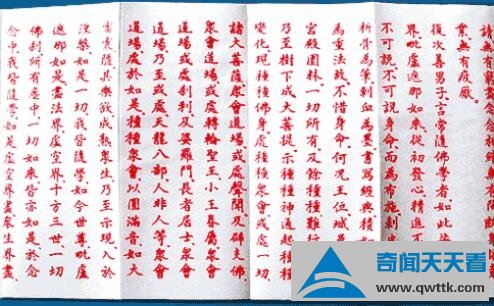 業無有疲厭
復次善男子言常隨佛學者如此娑
界毗盧遮那如來從初發心精進不
不可說不可說身命而為布施剝
析骨為筆刺血為墨書寫經典積
為重法故不惜身命何況王位城
宮殿園林一切所有及餘種種難行
乃至樹下成大菩提示種種神通起
變化現種種佛身處種種眾會或處一切
諸大菩薩眾會道場或處聲聞及辟支佛
眾會道場或處轉輪聖王小王眷屬眾會
道場或處剎利及婆羅門長者居士眾會
道場乃至或處天龍八部人非人等眾會
道場處於如是種種眾會以圓滿音如大
雷震隨其樂欲成熟眾生乃至示現入於
涅槃如是一切我皆隨學如今世尊毗盧
遮那如是盡法界虛空界十方三世一切
佛剎所有塵中一切如來皆亦如是於念
念中我皆隨學如是虛空界盡眾生界盡
奇闻天天看
www.qwttk.com